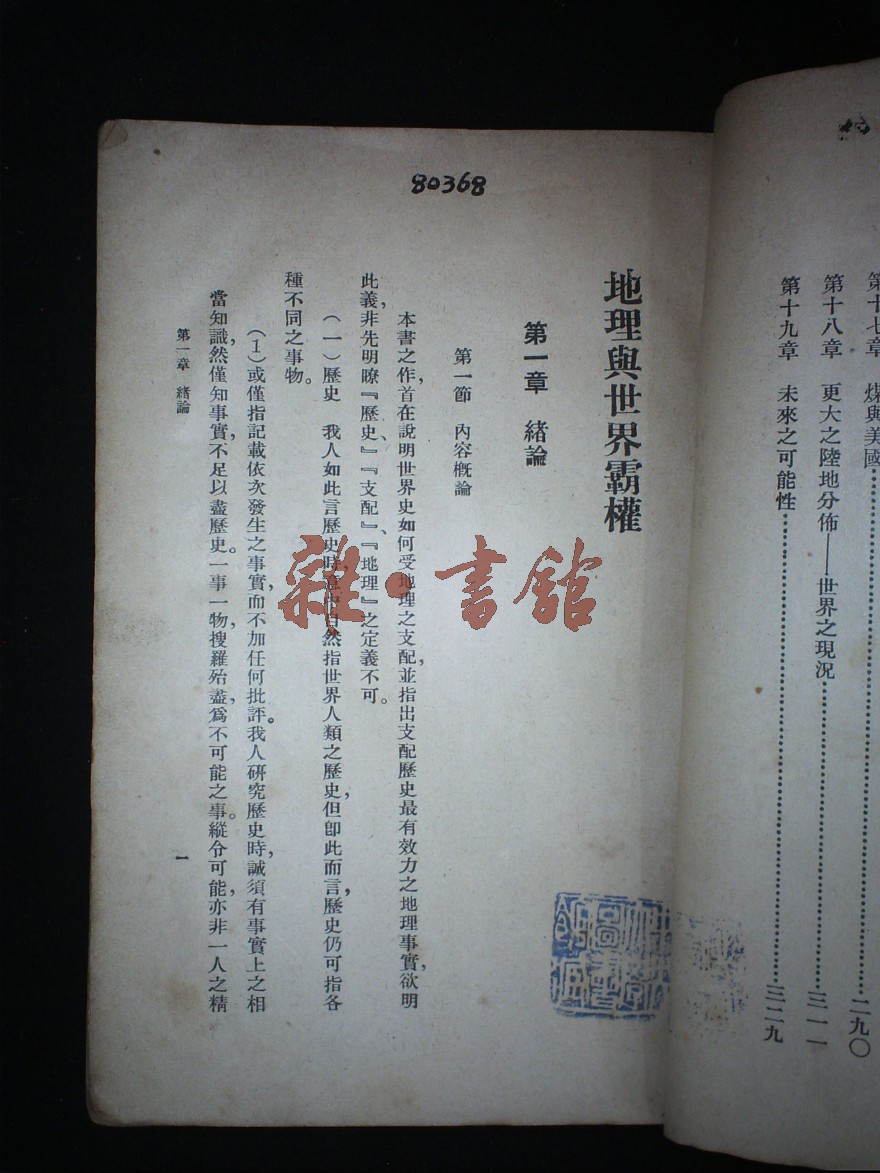 第十七章　煤與美國……二九〇
第十八章　更大之陸地分佈——世界之現況……三一一
第十九章　未來之可能性……三二九
80368
地理與世界霸權
第一章　緒論
第一節　內容概論
本書之作，首在說明世界史如何受地理之支配，並指出支配歷史最有效力之地理事實，欲明
此義，非先明瞭『歷史』、『支配』、『地理』之定義不可。
（一）歷史　我人如此言歷史時，意中自然指世界人類之歷史，但卽此而言，歷史仍可指各
種不同之事物。
（1）或僅指記載依次發生之事實，而不加任何批評。我人硏究歷史時，誠須有事實上之相
當知識，然僅知事實，不足以盡歷史。一事一物，搜羅殆盡，爲不可能之事。縱令可能，亦非一人之精
第一章　緒論
一
雜·書館